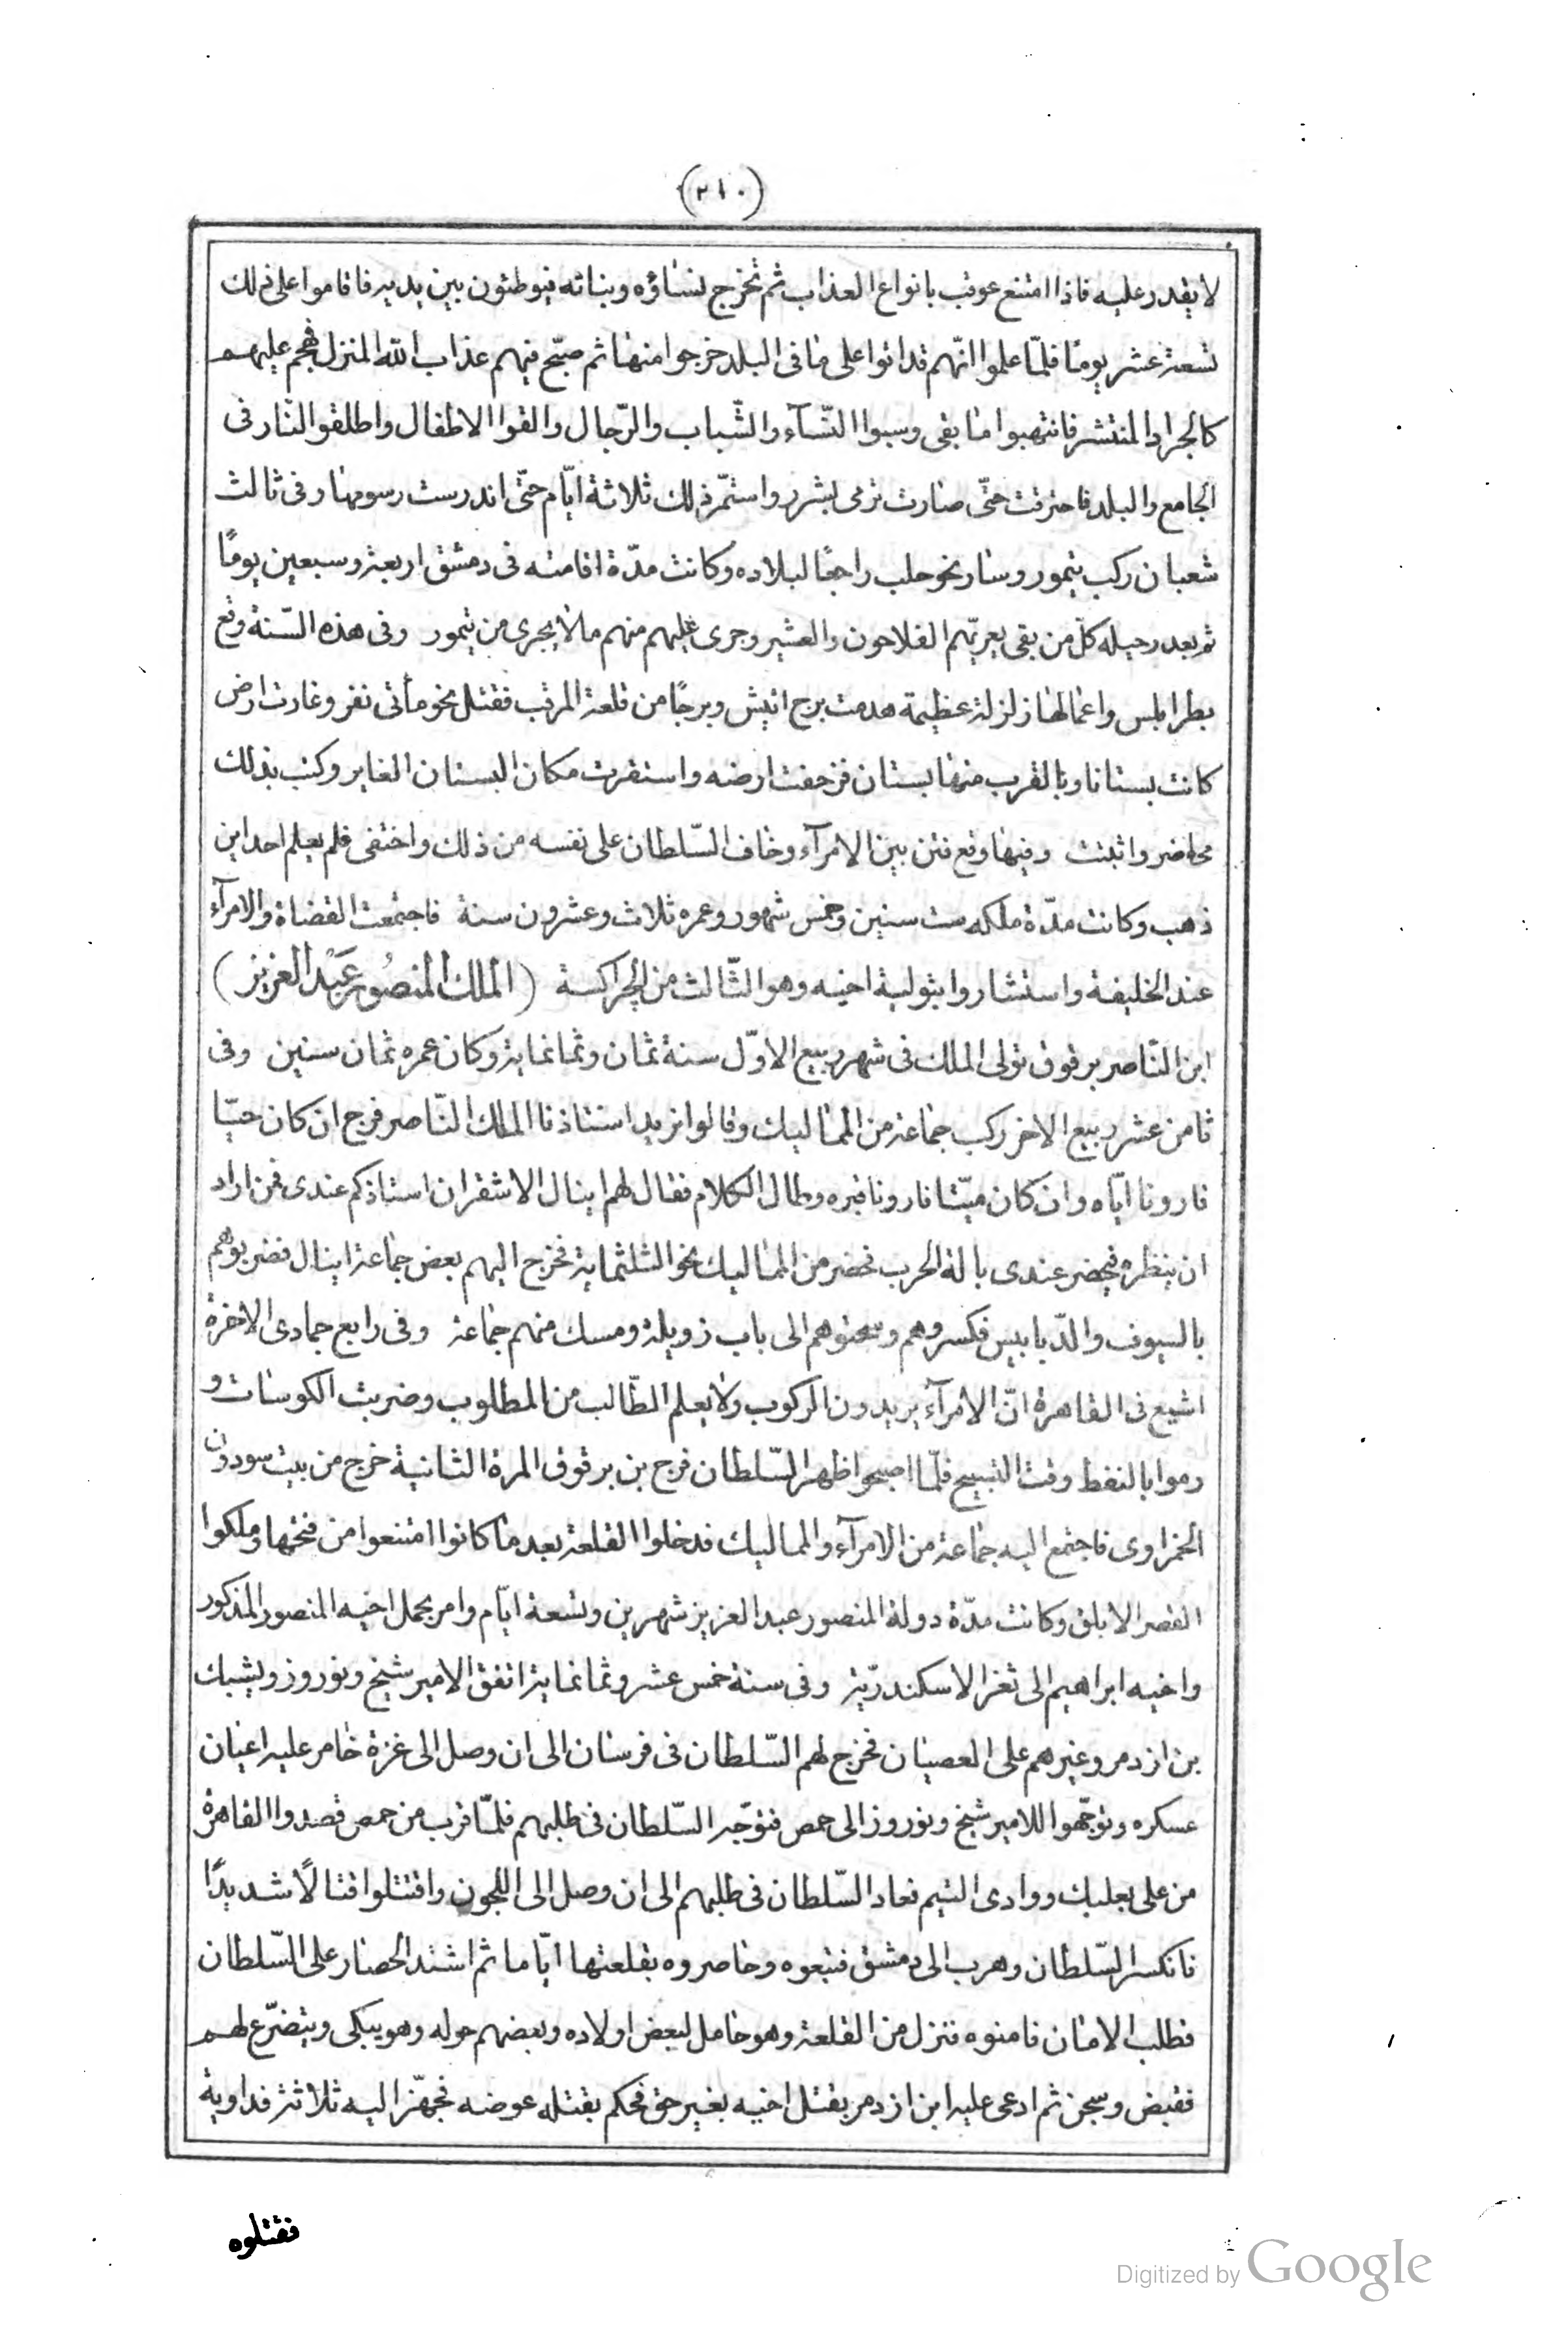 (٢١٠)
لا يقدر عليه فاذا امتنع عوقب بانواع العذاب ثم تخرج نساؤه وبناته فيوطئون بين يديه فاقاموا على ذلك
تسعة عشر يوما فلمّا علموا انّهم قد اتوا على ما فى البلد خرجوا منها ثم صبّح فيهم عذاب الله المنزل فهجم عليهم
كالجراد المنتشر فانتهبوا ما بقى وسبوا النّسآء والشّباب والرّجال والقوا الاطفال واطلقوا النّار فى
الجامع والبلد فاحترقت حتّى صارت ترمى بشرر واستمرّ ذلك ثلاثة ايّام حتّى اندرست رسومها وفى ثالث
شعبان ركب تيمور وسار نحو حلب راجعًا لبلاده وكانت مدّة اقامته فى دمشق اربعة وسبعين يومًا
ثم بعد رحيله كلّ من بقى يعريّهم الفلاحون والعشير وجرى عليهم منهم ما لا يجرى من تيمور وفى هذه السّنة وقع
بطرابلس واعمالها زلزلة عظيمة هدمت برج انيش وبرجًا من قلعة المرقب فقتل نحو مأتى نفر وغارت ارض
كانت بستانا وبالقرب منها بستان فزحفت ارضه واستقرت مكان البستان الغاير وكتب بذلك
محاضر واثبتت وفيها وقع فتن بين الامرآء وخاف السّلطان على نفسه من ذلك واختفى فلم يعلم احد اين
ذهب وكانت مدّة ملكه ست سنين وخمس شهور وعمره ثلاث وعشرون سنة فاجتمعت القضاة والامرآء
عند الخليفة واستشاروا بتولية اخيه وهو الثّالث من الجراكسة (الملك المنصُور عَبْد العزيز)
ابن النّاصر برقوق تولى الملك فى شهر ربيع الاوّل سنة ثمان وثمانماية وكان عمره ثمان سنين وفى
ثامن عشر ربيع الاخر ركب جماعة من المماليك وقالوا نريد استاذنا الملك النّاصر فرج ان كان حيّا
فارونا ايّاه وان كان ميّتا فارونا قبره وطال الكلام فقال لهم اينال الاشقر ان استاذكم عندى فمن اراد
ان ينظره فيحضر عندى بالة الحرب فحضر من المماليك نحو الثلثماية فخرج اليهم بعض جماعة اينال فضربوهم
بالسيوف والدّبابيس فكسروهم وسحبوهم الى باب زويلة ومسك منهم جماعة وفى رابع جمادى الاخرة
اشيع فى القاهرة انّ الامرآء يريدون الركوب ولا يعلم الطّالب من المطلوب وضربت الكوسات و
رموا بالنفط وقت التسبيح فلمّا اصبحوا ظهر السّلطان فرج بن برقوق المرة الثانية خرج من بيت سودون
الحمزاوى فاجتمع اليه جماعة من الامرآء والمماليك فدخلوا القلعة بعد ما كانوا امتنعوا من فتحها وملكوا
القصر الابلق وكانت مدّة دولة المنصور عبد العزيز شهرين وتسعة ايّام وامر بحمل اخيه المنصور المذكور
واخيه ابراهيم الى ثغر الاسكندريّة وفى سنة خمس عشر وثمانماية اتفق الامير شيخ ونوروز ويشبك
بن ازدمر وغيرهم على العصيان فخرج لهم السّلطان فى فرسان الى ان وصل الى غزة خامر عليه اعيان
عسكره وتوجّهوا للامير شيخ ونوروز الى حمص فتوجّه السّلطان فى طلبهم فلمّا قرب من حمص قصدوا القاهرة
من على بعلبك ووادى التيم فعاد السّلطان فى طلبهم الى ان وصل الى اللجون واقتتلوا قتالًا شديدًا
فانكسر السّلطان وهرب الى دمشق فتبعوه وحاصروه بقلعتها ايّاما ثم اشتد الحصار على السّلطان
فطلب الامان فامنوه فنزل من القلعة وهو حامل لبعض اولاده وبعضهم حوله وهو يبكى ويتضرّع لهم
فقبض وسجن ثم ادعى عليه ابن ازدمر بقتل اخيه بغير حق فحكم بقتله عوضه فجهّز اليه ثلاثة فداوية
فقتلوه
Digitized by Google